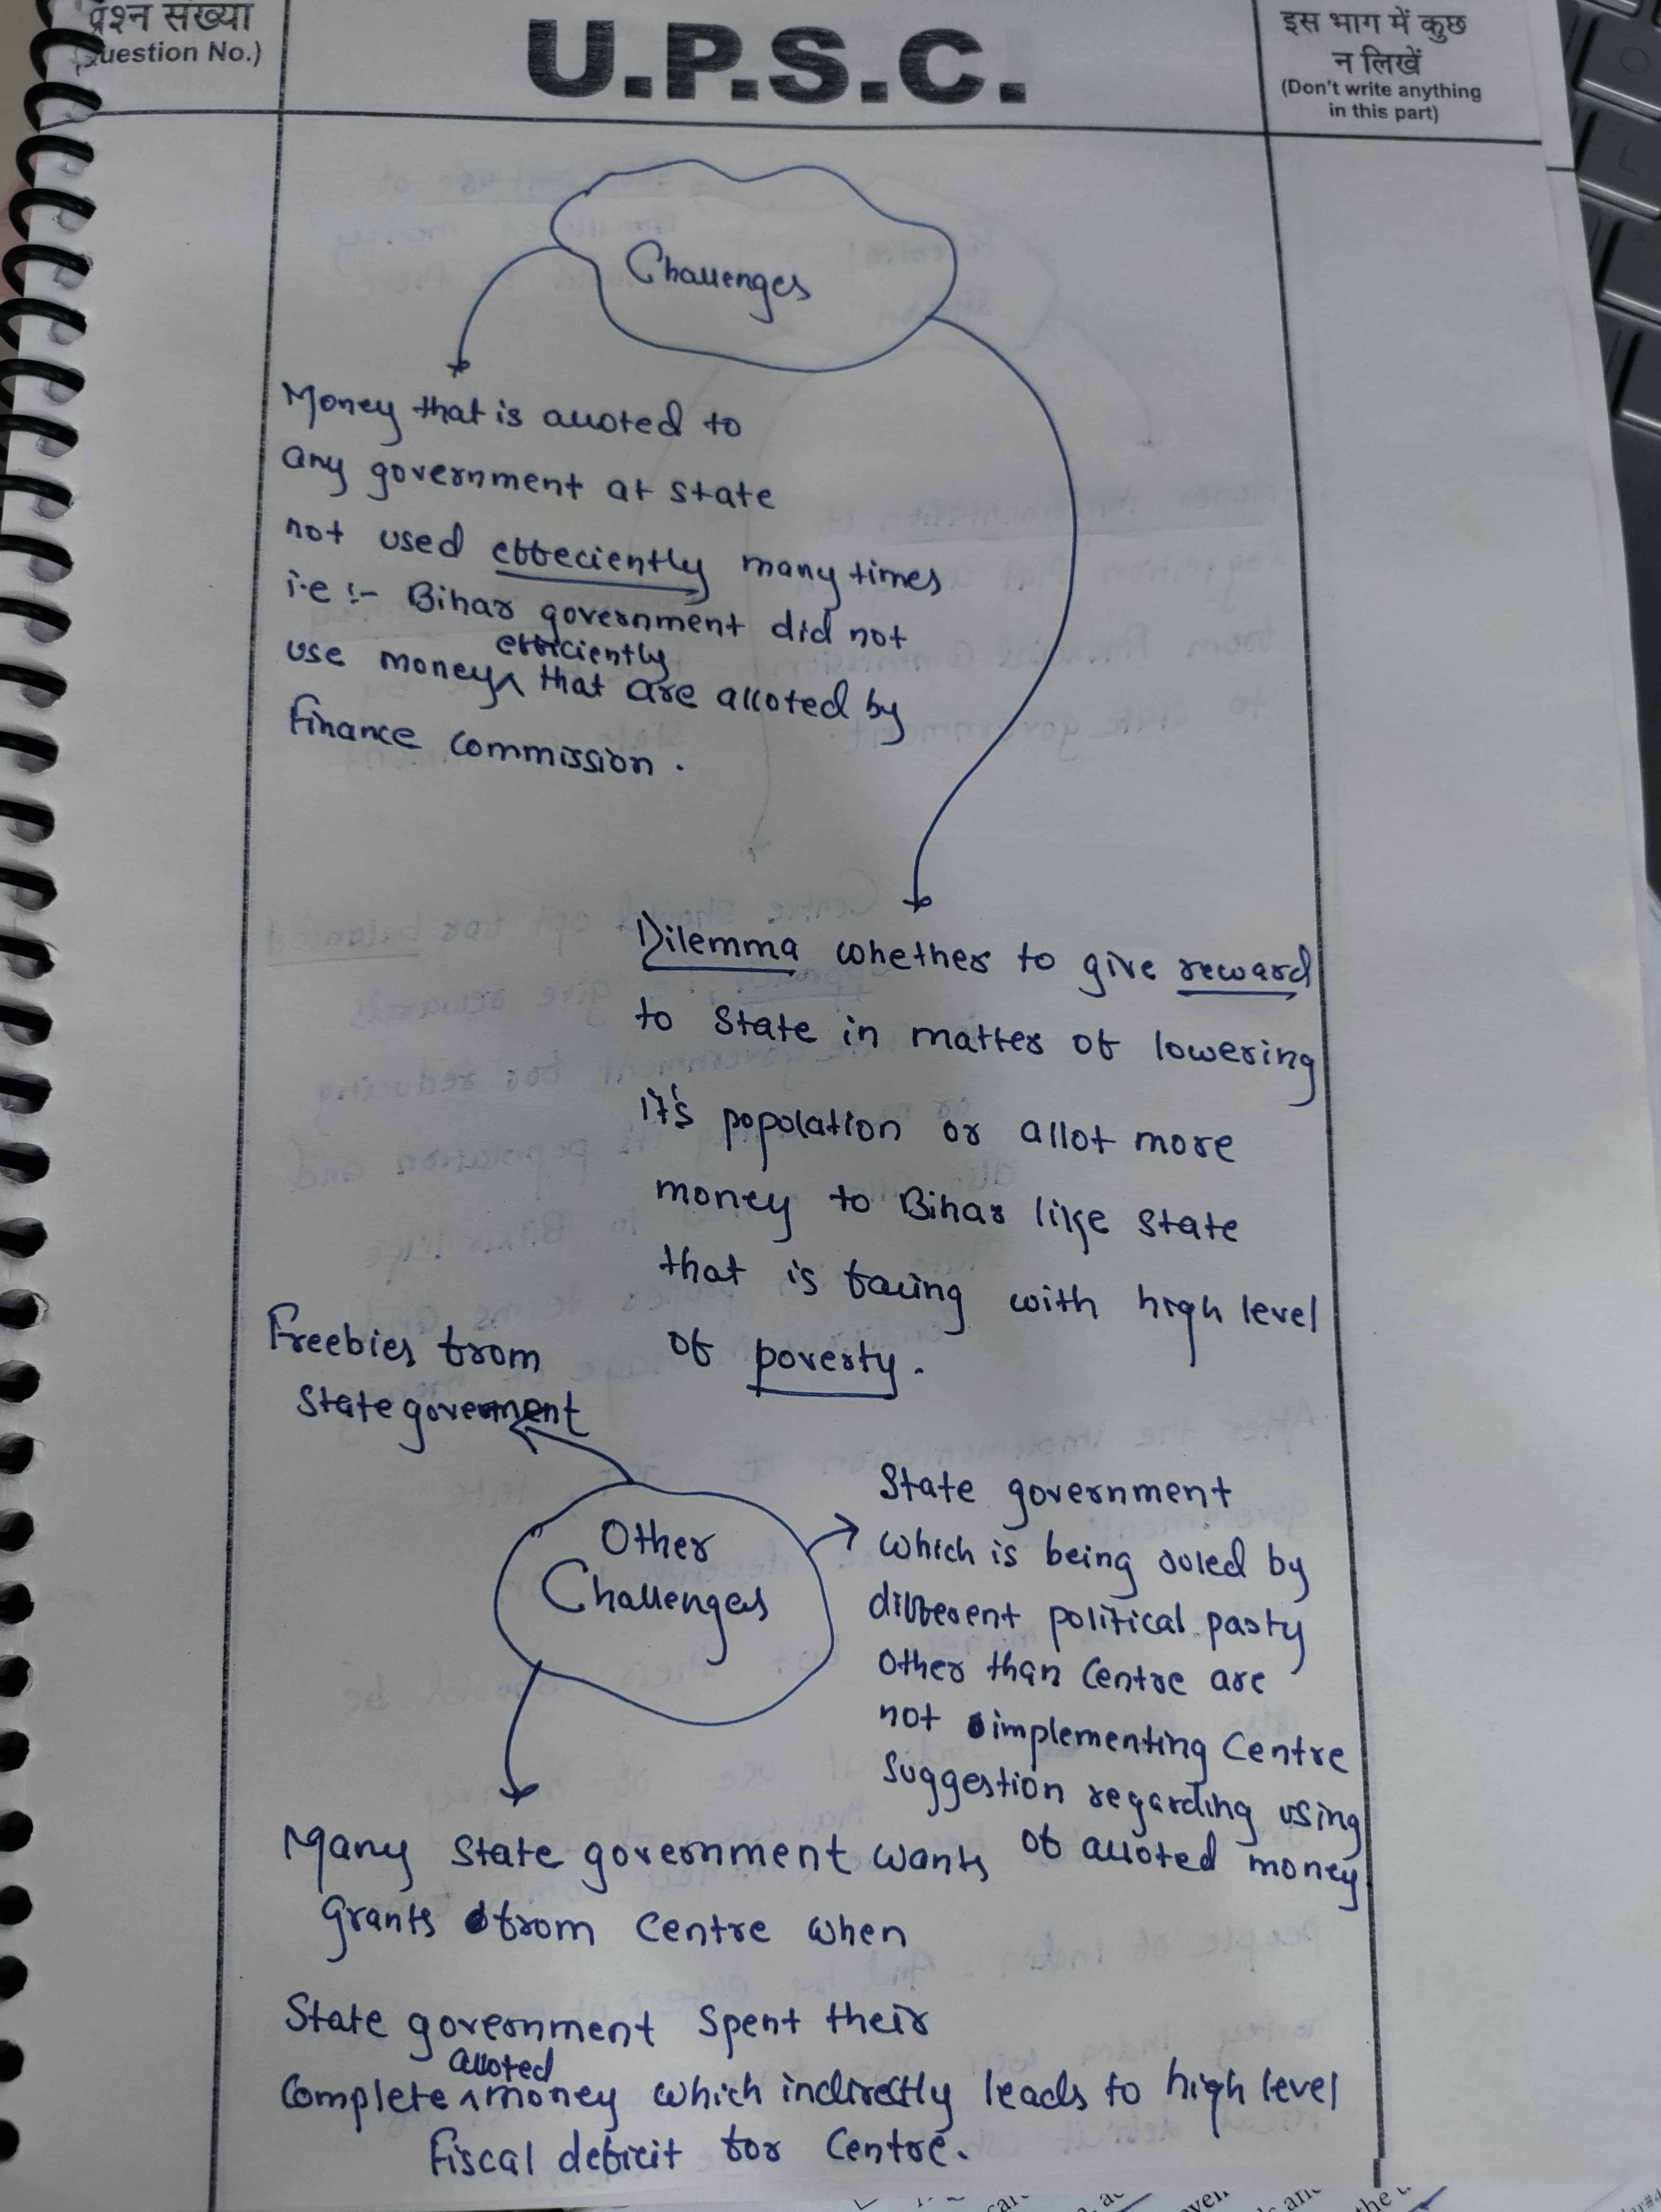 प्रश्न संख्या
(Question No.)
U.P.S.C.
इस भाग में कुछ
न लिखें
(Don't write anything
in this part)
Challenges
Money that is alloted to
any government at state
not used effeciently many times
i.e :- Bihar government did not
efficiently
use money^ that are alloted by
Finance commission.
Dilemma whether to give reward
to State in matter of lowering
it's population or allot more
money to Bihar like state
that is facing with high level
of poverty.
Freebies from
State government
Other
Challenges
State government
which is being ruled by
different political party
other than Centre are
not implementing Centre
suggestion regarding using
of alloted money
Many State government wants
grants from Centre when
State government spent their
alloted
complete ^ money which indirectly leads to high level
fiscal deficit for Centre.